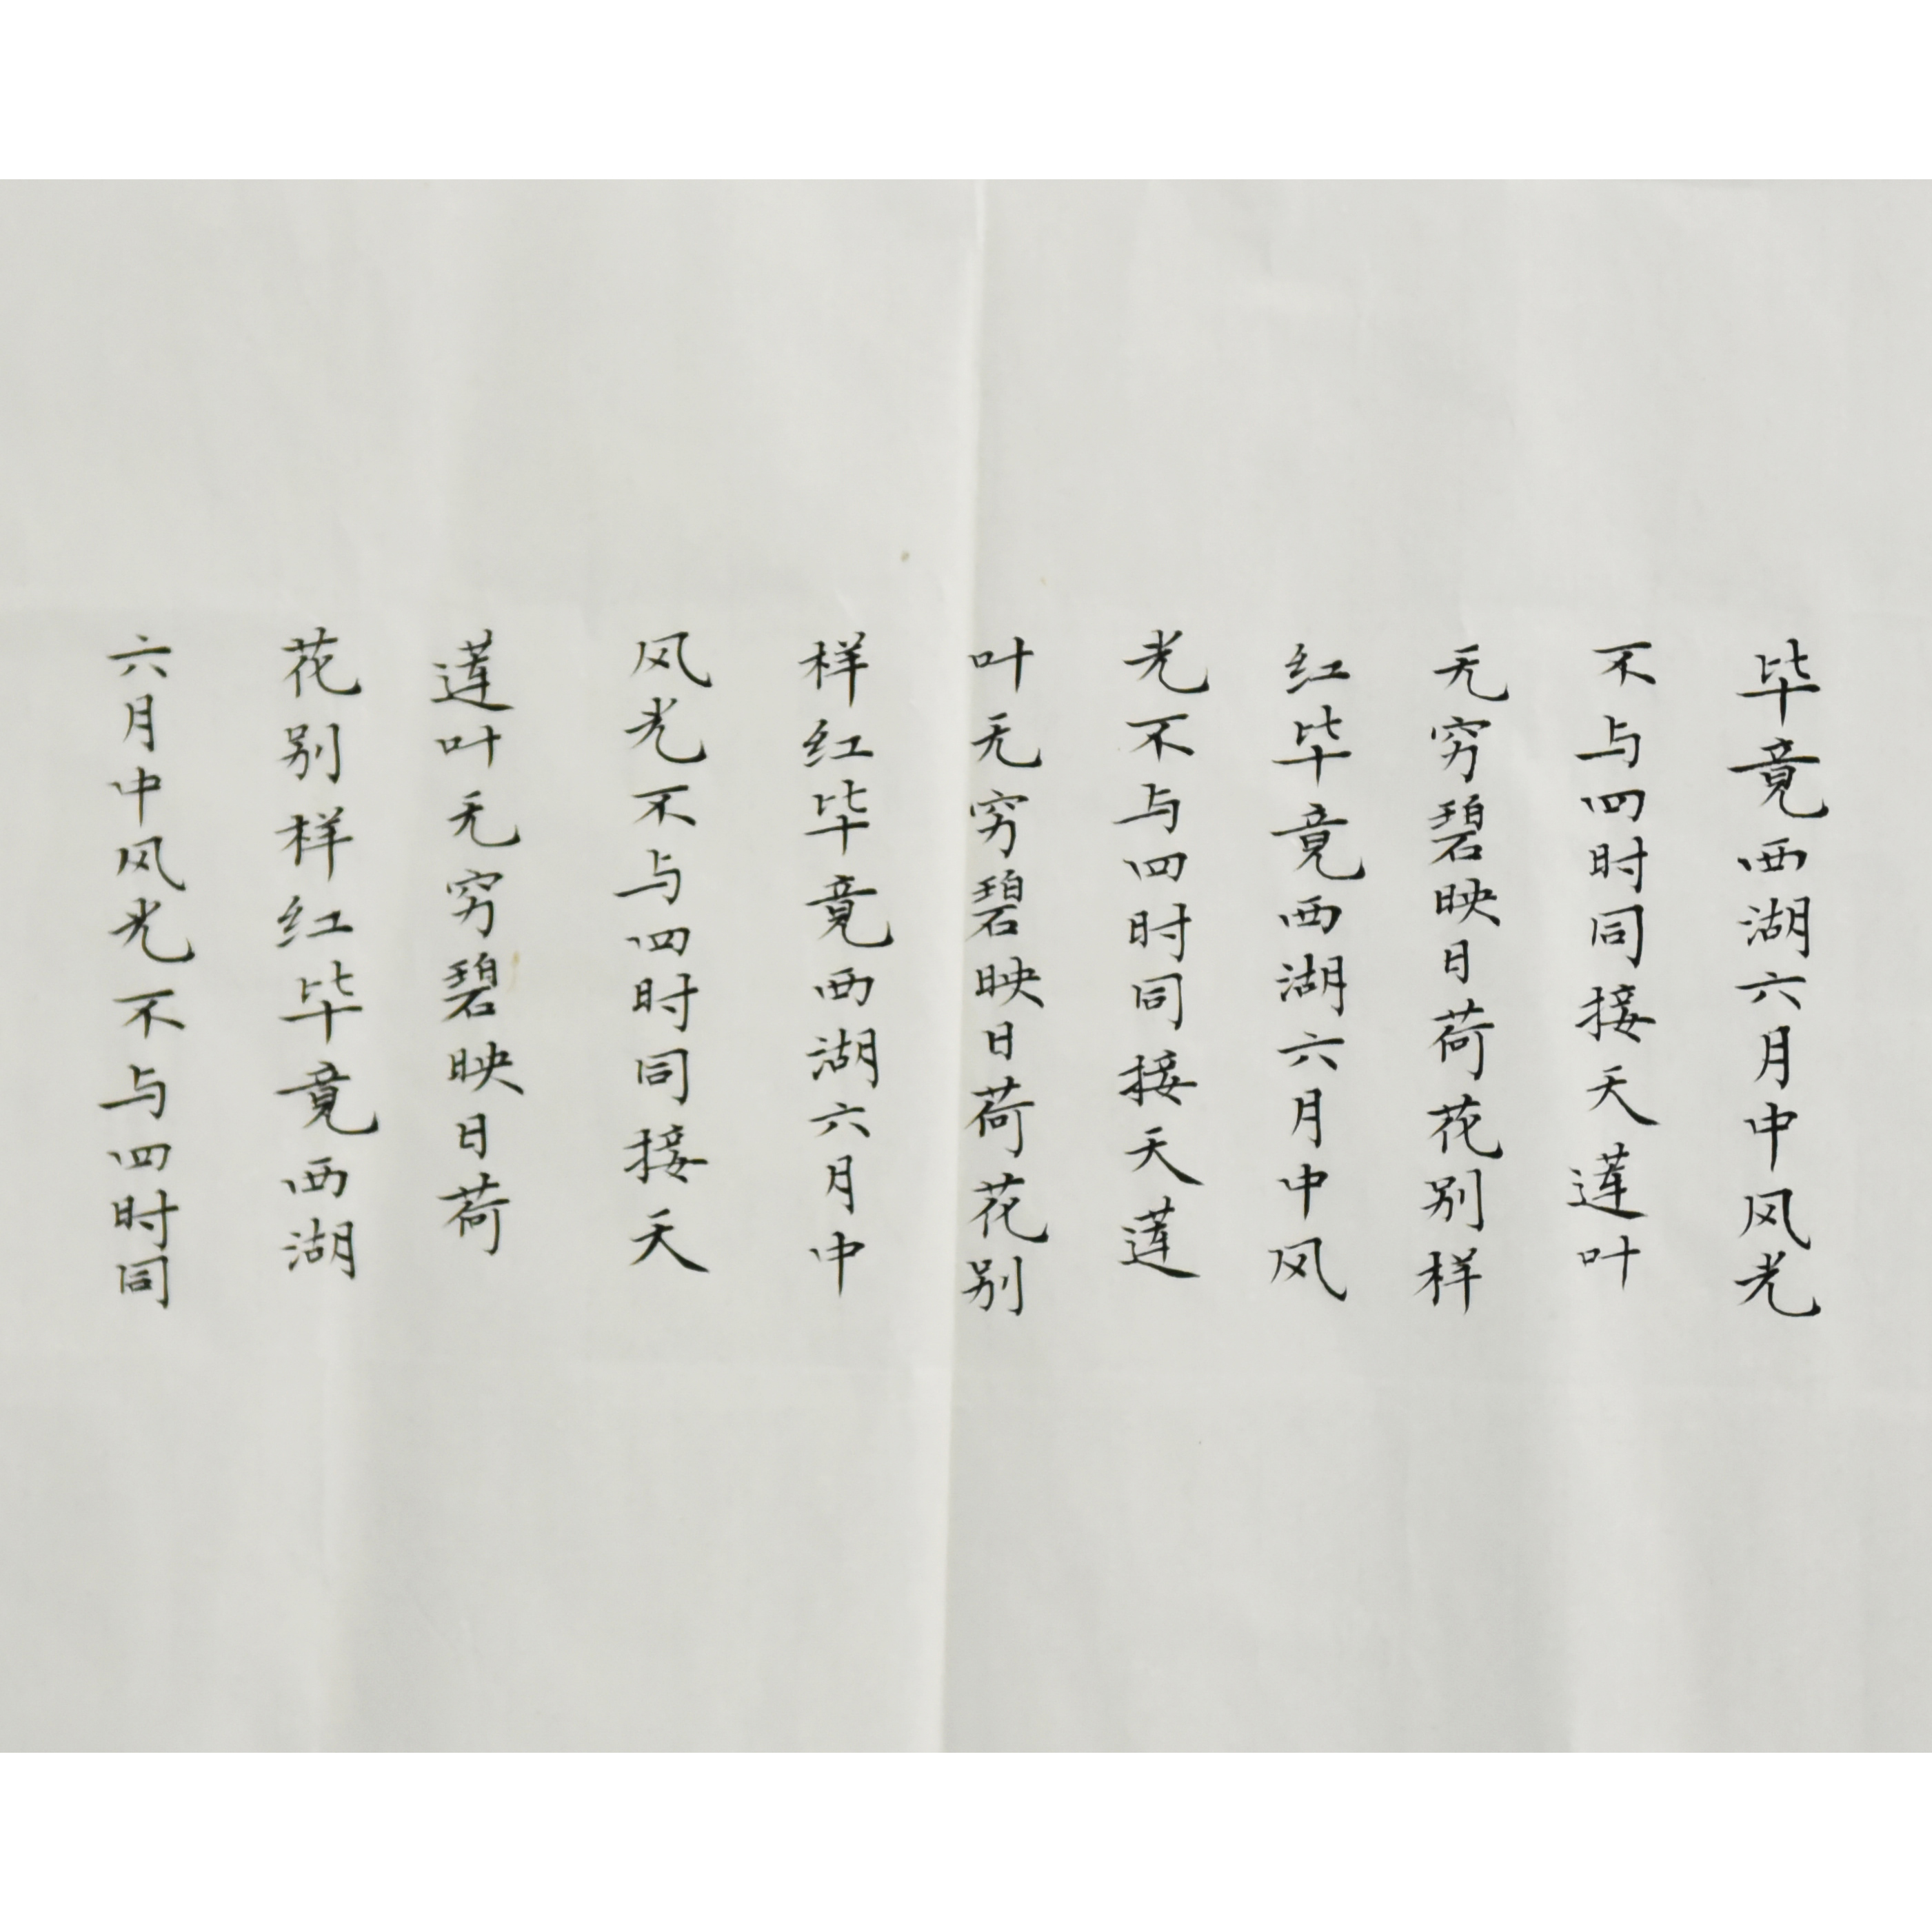 毕竟西湖六月中风光
不与四时同接天莲叶
无穷碧映日荷花别样
红毕竟西湖六月中风
光不与四时同接天莲
叶无穷碧映日荷花别
样红毕竟西湖六月中
风光不与四时同接天
莲叶无穷碧映日荷
花别样红毕竟西湖
六月中风光不与四时同